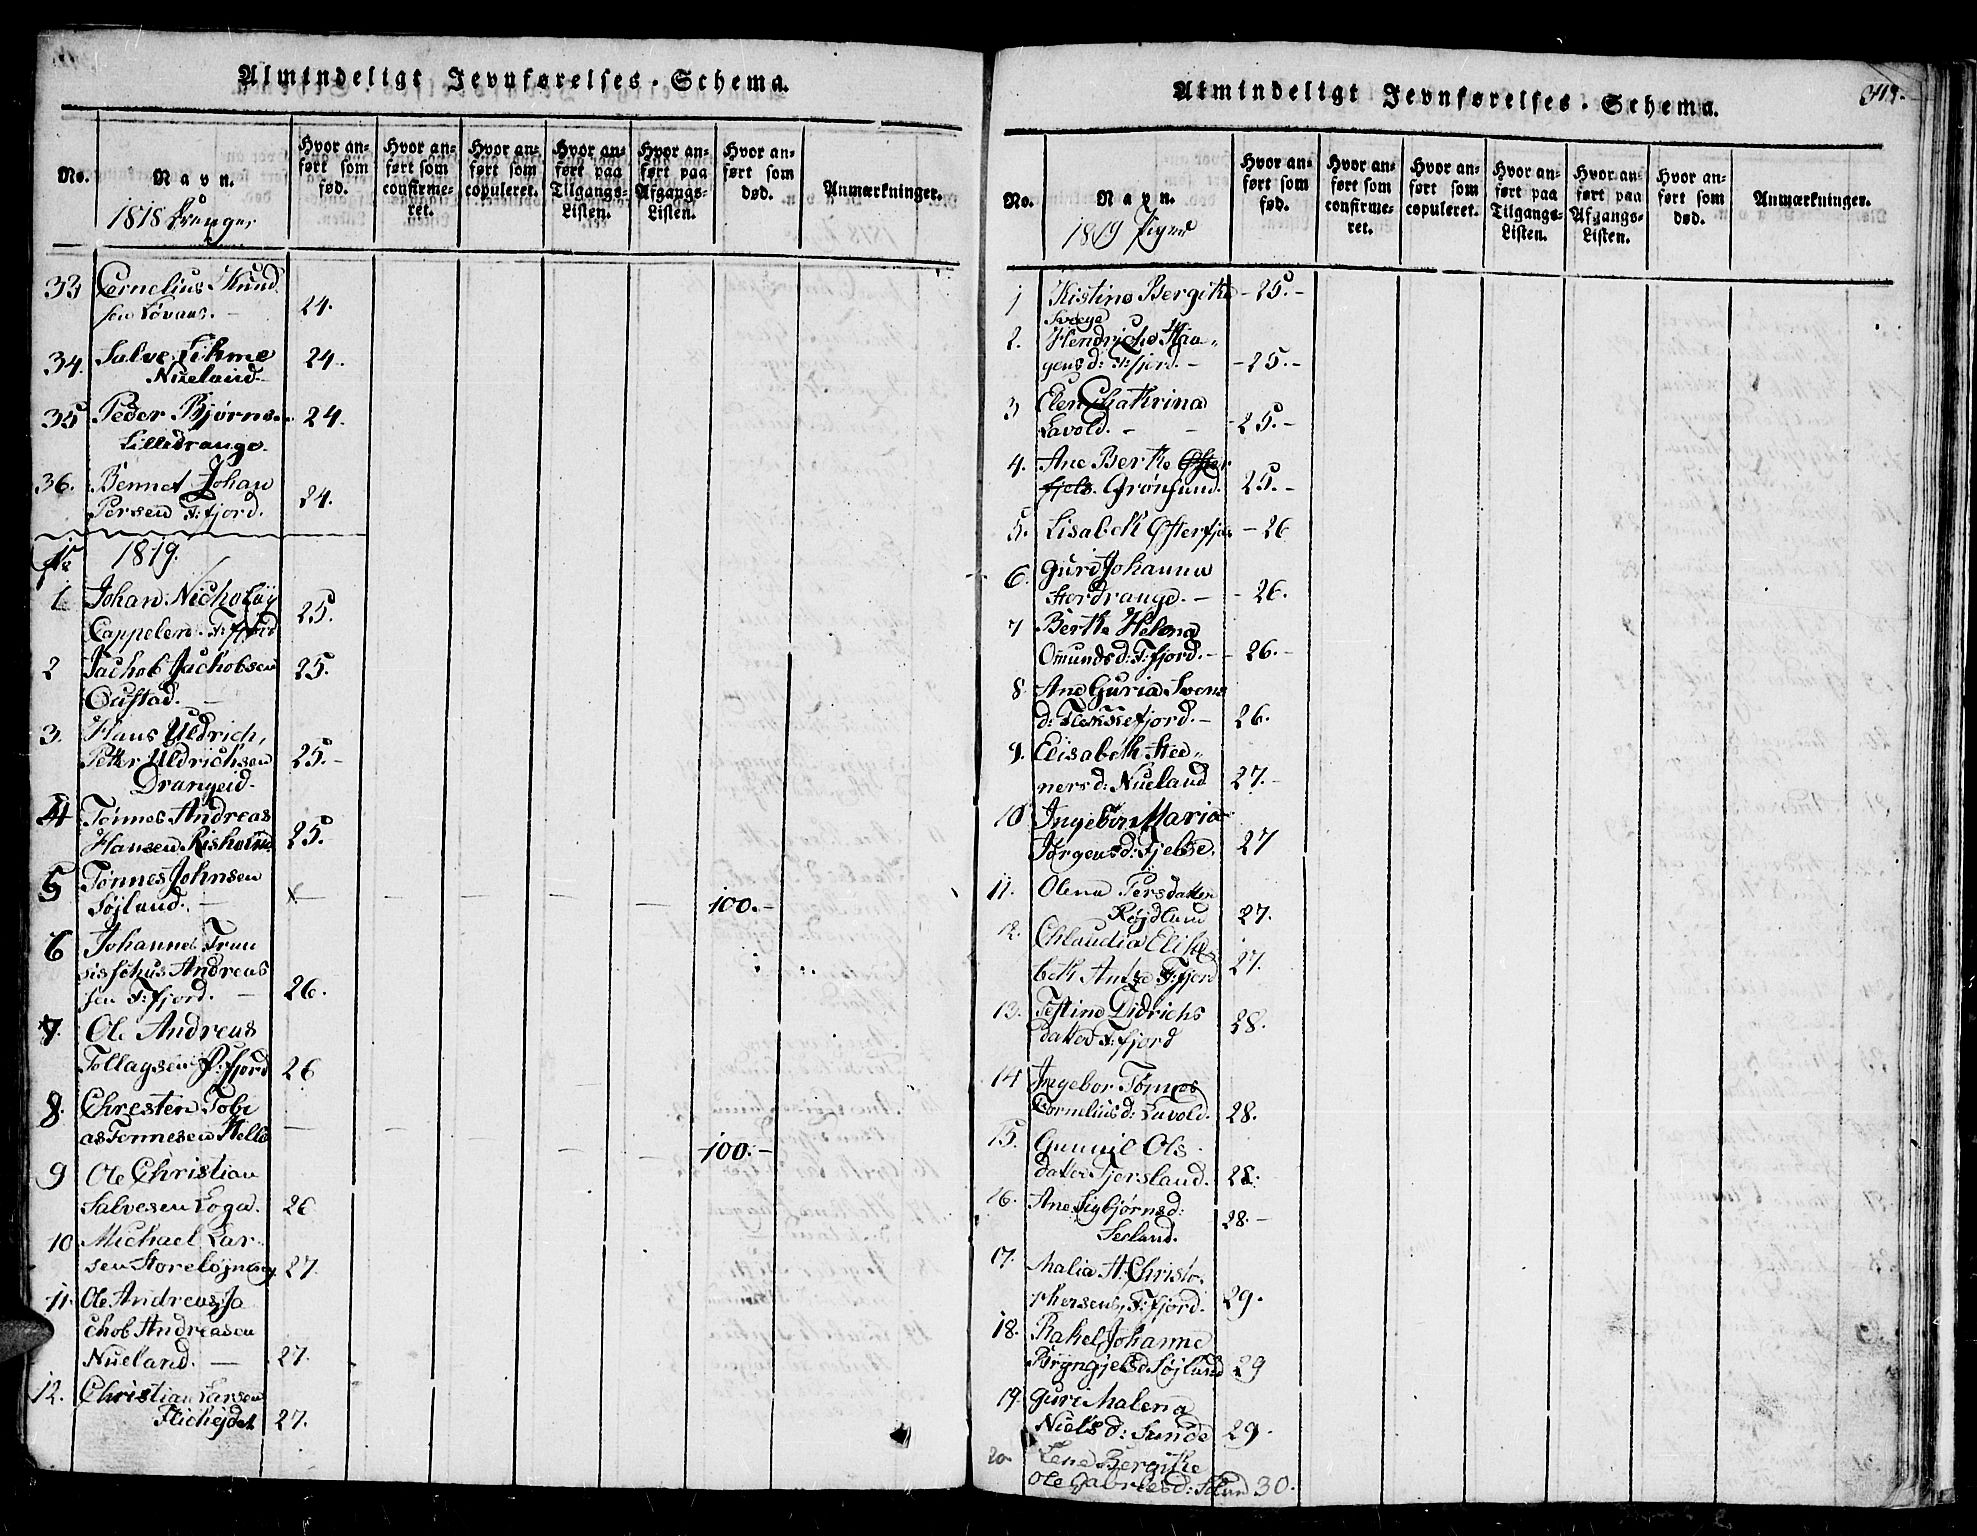 Almindeligt Jevnførelses-Schema.
No.
Navn.
Hvor anført som fød.
Hvor anført som confirmeret.
Hvor anført som copuleret.
Hvor anført paa Tilgangs-Listen.
Hvor anført paa Afgangs-Listen.
Hvor anført som død.
Anmærkninger.
1818 Drenge,
33 Cornelius Knud
sen Lovaas. - 24.
34. Salve Lihme
Nueland- 24.
35 Peder Bjørns.
Lilledrange. 24.
36. Bennet Johan
Persen F:fjord. 24.
1819.
1 Johan Nicholay
Cappelen. F:fjord 25.
2 Jachob Jachobsen
Oustad. - 25.
3. Hans Uldrich,
Petter Uldrichsen
Drangeid. 25.-
4 Tønnes Andreas
Hansen Risholm. 25.
5 Tønnes Johnsen
Søjland. - x - - - - 100.-
6 Johannes Fran
sischus Andreas
sen F:fjord. - 26.
7. Ole Andreas
Tollagsen F:fjord 26
8. Chresten Tobi
as Tønnesen Helle - - - - - 100.-
9 Ole Christian
Salvesen Loga. 26
10 Michael Lar
sen Storeløjning. 27.
11. Ole Andreas Ja
chob Andreasen
Nueland. - 27.
12. Christian Larsen
Flichejdet 27.
Almindeligt Jevnførelses-Schema.
No.
Navn.
Hvor anført som fød.
Hvor anført som confirmeret.
Hvor anført som copuleret.
Hvor anført paa Tilgangs-Listen.
Hvor anført paa Afgangs-Listen.
Hvor anført som død.
Anmærkninger.
1819 Piger
1 Kistine Bergitte - 25.-
Svege
2. Hendriche Haa-
gensd: F:fjord. - - 25.-
3 Elen Chathrina
Lavold. - - - 25.-
4. Ane Berthe Øster
fjels. Grønsund. 25.-
5. Lisabeth Østerfjels - 26
6. Guri Johanna
Stordrange. - - 26.
7 Berthe Helena
Omundsd: F:fjord. - - 26.-
8. Ane Guria Svens
d: Flekkefjord. - 26.
9. Elisabeth Stee-
nersd: Nueland 27.-
10 Ingebor Maria
Jørgensd: Fjelse. 27
11. Olena Persdatter
Røjdland 27.
12. Chlaudia Elisa
beth Antze F:fjord 27.
13. Testine Didrichs
datter F:fjord 28.
14 Ingebor Tønnes
Corneliusd: Lavold. 28.
15. Gunnil Ols
datter Fjersland. 28.
16. Ane Sigbjørnsd:
Sesland. 28.-
17. Malia A. Christo-
phersens, F:fjord. 29.
18. Rakel Johanne
Bryngjelsd. Søjland 29
19. Guri Malena
Niels d: Sunde 29.
20 Lene Bergitte
Ole Gabrielsd: 30.